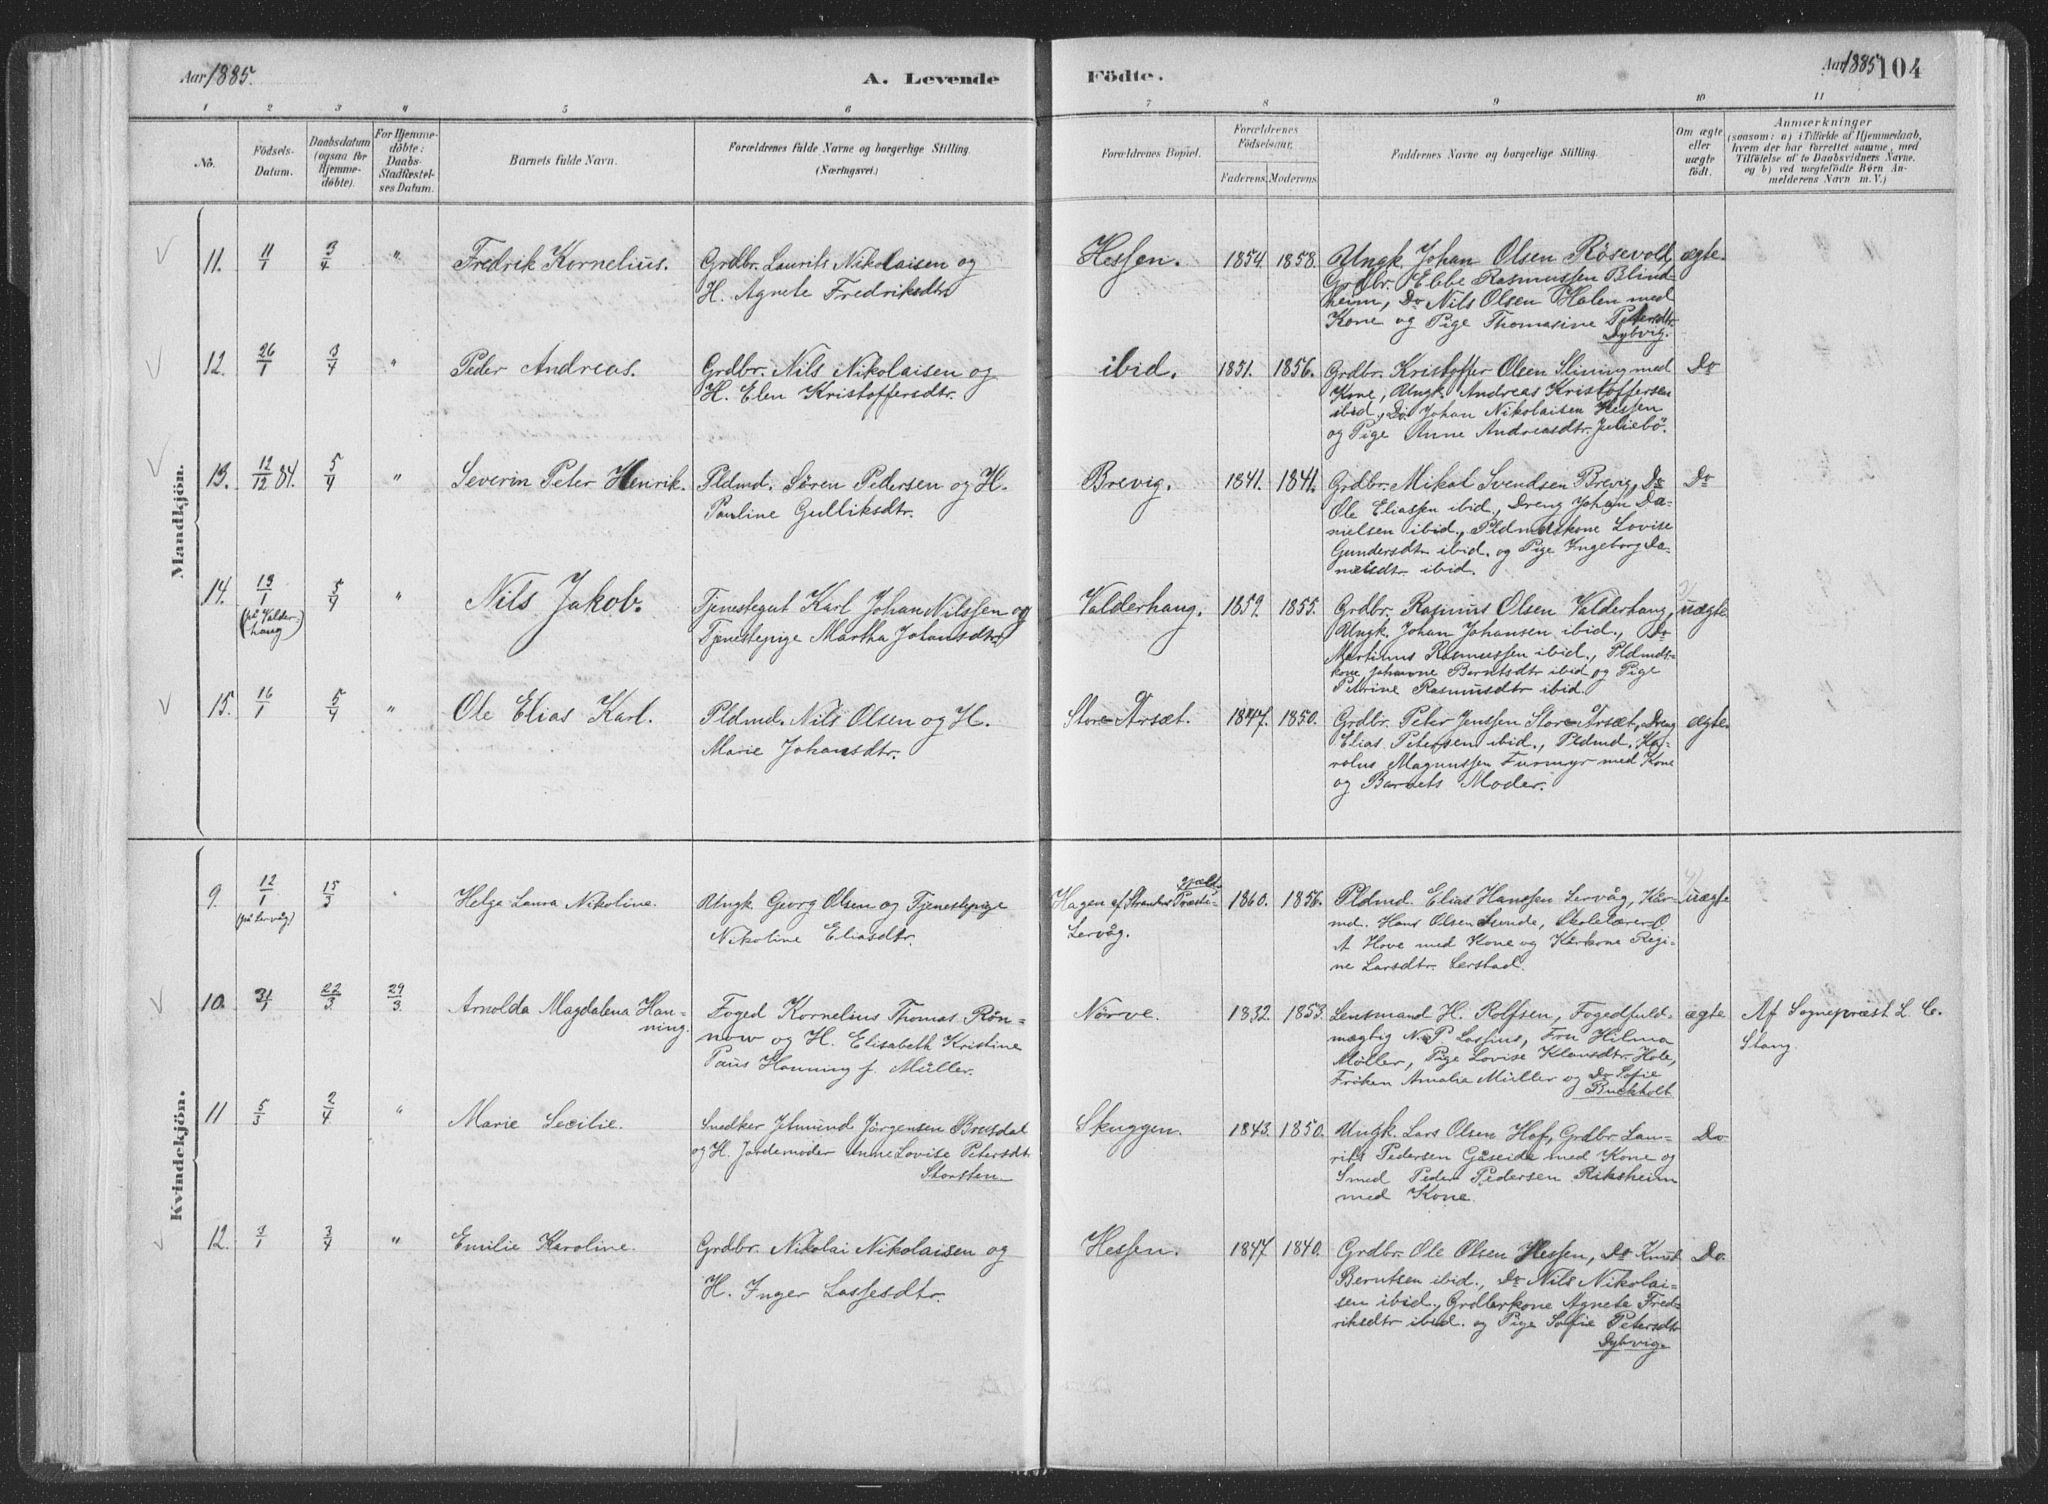 Aar 1885.
A. Levende
Födte.
Aar 1885
104
1 2 3 4 5 6 7 8 9 10 11
No.
Födsels-
Datum.
Daabsdatum
(ogsaa for
Hjemme-
döbte).
For Hjemme-
döbte:
Daabs-
Stadfæstel-
ses Datum.
Barnets fulde Navn.
Forældrenes fulde Navne og borgerlige Stilling.
(Næringsvei.)
Forældrenes Bopæl.
Forældrenes
Födselsaar.
Faderens.
Moderens.
Faddernes Navne og borgerlige Stilling.
Om ægte
eller
uægte
födt.
Anmærkninger
(saasom: a) i Tilfælde af Hjemmedaab,
hvem der har forrettet samme, med
Tilföielse af to Daabsvidners Navne.
og b) ved uægtefödte Börn An-
melderens Navn m. V.)
Mandkjön.
11. 11/1 3/4 " Fredrik Kornelius.
Grdbr. Laurits Nikolaisen og
H. Agnete Fredriksdtr.
Hessen. 1854. 1858.
Ungk. Johan Olsen Rösevold,
Grdbr. Ebbe Rasmussen Blind-
heim, Do Nils Olsen Holen med
Kone og Pige Thomasine Petersdtr.
Dybvig.
ægte.
12. 26/1 3/4 " Peder Andreas.
Grdbr. Nils Nikolaisen og
H. Elen Kristoffersdtr.
ibid. 1851. 1856.
Grdbr. Kristoffer Olsen Slining med
Kone, Ungk. Andreas Kristoffersen
ibid., Do. Johan Nikolaisen Hessen
og Pige Anne Andreasdtr. Juliebö.
Do
13. 12/12 84. 5/4 " Severin Peter Henrik.
Pldmd. Sören Pedersen og H.
Pauline Gulliksdtr.
Brevig. 1841. 1841.
Grdbr. Mikal Svendsen Brevig, Do
Ole Eliassen ibid., Dreng Johan Da-
nielsen ibid., Pldmdskone Lovise
Gundersdtr ibid. og Pige Ingeborg Da-
nielsdtr. ibid.
Do
14. 13/1 (på Valder-
haug) 5/4 " Nils Jakob.
Tjenestegut Karl Johan Nilssen og
Tjenestepige Martha Johansdtr.
Valderhaug. 1859. 1855.
Grdbr. Rasmus Olsen Valderhaug,
Ungk. Johan Johansen ibid., Do
Martinus Rasmussen ibid., Pldmds-
kone Johanne Berntsdtr ibid og Pige
Petrine Rasmusdtr ibid.
uægte
15. 16/1 5/4 " Ole Elias Karl.
Pldmd. Nils Olsen og H.
Marie Johansdtr.
Store-Årsæt. 1847. 1850.
Grdbr. Peter Jenssen Store-Årsæt, Dreng
Elias Petersen ibid., Pldmd. Ka-
rolus Magnussen Furmyr med Kone
og Barnets Moder.
ægte.
Kvindekjön.
9. 12/1 (på Lervåg) 15/3 " Helga Laura Nikoline.
Ungk. Georg Olsen og Tjenestepige
Nikoline Eliasdtr.
Hagen af Strandens Præste-
gjæld
Lervåg.
1860. 1856.
Pldmd. Elias Hanssen Lervåg, Kår-
md. Hans Olsen Sunde, Skolelærer O.
A Hove med Kone og Kårkone Regi-
ne Larsdtr. Lerstad.
uægte
10. 31/1 22/3 29/3 Arnolda Magdalena Han-
ning.
Foged Kornelius Thomas Rön-
now og H. Elisabeth Kristine
Paus Hanning f. Müller.
Nörve. 1832. 1853.
Lensmand H. Rolfsen, Fogedfuld-
mægtig N. P. Lassius, Fru Hilma
Möller, Pige Lovise Klausdtr. Hole,
Fröken Amalia Müller og Do Sofie
Buckholt
ægte
Af Sogneprest L. C.
Stang.
11 5/3 2/4 " Marie Secilie.
Snedker Jetmund Jörgensen Brusdal
og H. Jordemoder Anne Lovise Petersdtr
Storsten.
Skuggen. 1843. 1850.
Ungk. Lars Olsen Hof, Grdbr. Lau-
rits Pedersen Gåseide med Kone og
Smed Peder Pedersen Riksheim
med Kone.
Do
12. 3/1 3/4 " Emilie Karoline.
Grdbr. Nikolai Nikolaisen og
H. Inger Lassesdtr.
Hessen. 1847. 1840.
Grdbr. Ole Olsen Hessen, Do Knut
Berntsen ibid., Do Nils Nikolai-
sen ibid., Grdbrkone Agnete Fred-
riksdtr ibid. og Pige Sofie Petersdtr
Dybvig.
Do.